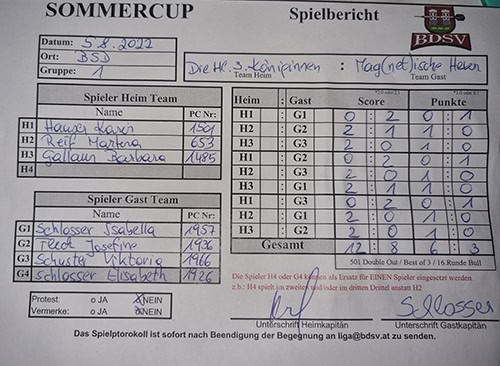 SOMMERCUP
Spielbericht
BDSV
Datum: 5.8.2022
Ort: BSD
Gruppe: 1
Die Hl. 3. Königinnen : Mag(net)ische Hexen
Team Heim Team Gast
Spieler Heim Team
Name PC Nr:
H1 Hauser Karin 1501
H2 Reif Martina 653
H3 Gallaun Barbara 1485
H4
Spieler Gast Team
Name PC Nr:
G1 Schlosser Isabella 1957
G2 Josefine 1936
G3 Schuster Viktoria 1966
G4 Schlosser Elisabeth 1926
Heim : Gast Score Punkte
H1 : G1 0 : 2 0 : 1
H2 : G2 2 : 1 1 : 0
H3 : G3 2 : 0 1 : 0
H1 : G2 0 : 2 0 : 1
H2 : G3 2 : 0 1 : 0
H3 : G1 2 : 1 1 : 0
H1 : G3 0 : 2 0 : 1
H2 : G1 2 : 0 1 : 0
H3 : G2 2 : 0 1 : 0
Gesamt 12 : 8 6 : 3
501 Double Out / Best of 3 / 16.Runde Bull
Die Spieler H4 oder G4 können als Ersatz für EINEN Spieler eingesetzt werden
z.b.: H4 spielt im zweiten und/oder im dritten Drittel anstatt H2
Protest: o JA NEIN
Vermerke: o JA NEIN
Schlosser
Unterschrift Heimkapitän Unterschrift Gastkapitän
Das Spielptorokoll ist sofort nach Beendigung der Begegnung an liga@bdsv.at zu senden.